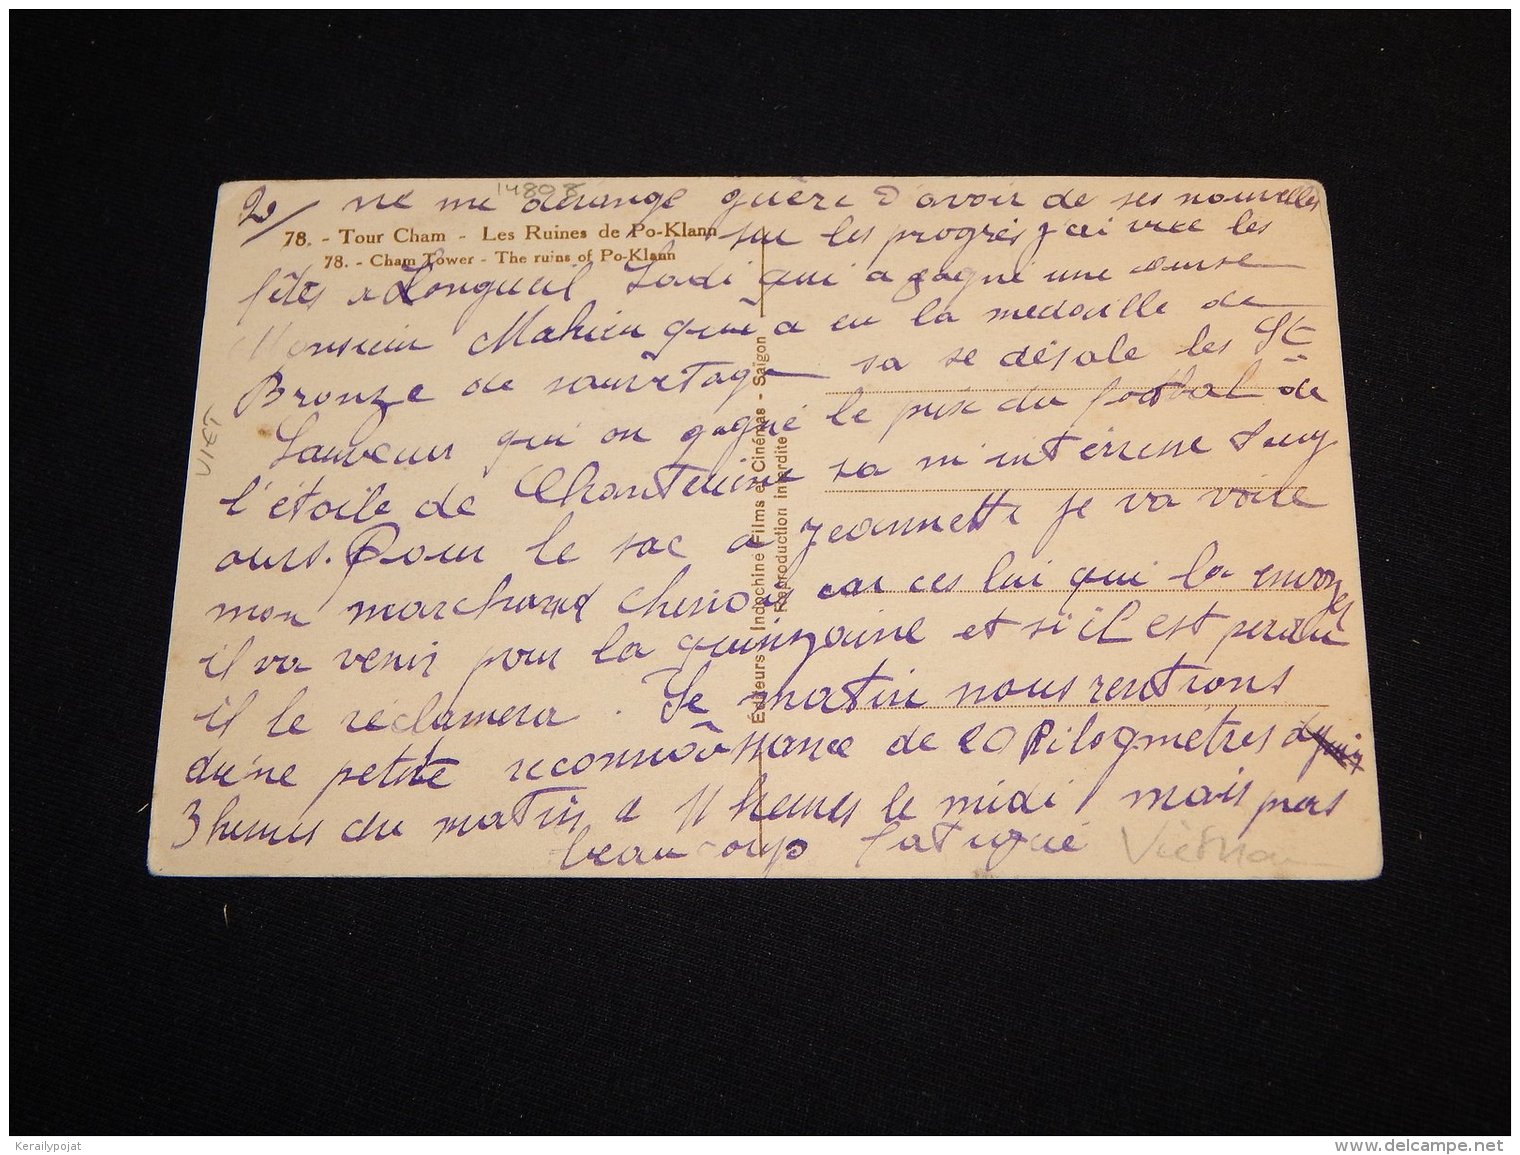 14808
2/ ne me dérange guère d'avoir de ses nouvelles
78. - Tour Cham - Les Ruines de Po-Klann
78. - Cham Tower - The ruins of Po-Klann
sur les progrès j'ai vue les
fêtes a Longueil Ladi qui a gagné une course
Monsieur Mahieu qui a eu la medaille de
Bronze de sauvetage sa se désole les St
Sauveur qui on gagné le prix du football de
l'étoile de sa m'intéresse
ours. Pour le sac a jeannette je va voire
mon marchand chinoi car ces lui qui la envoyes
il va venir pour la quinzaine et si il est perdu
il le réclamera. Se matin nous rentrons
du'ne petite reconnaîssance de 20 Kilogmetres
3 heures du matin a 11 heures le midi mais pas
beaucoup fatigué
Vietnam
VIET
Éditeurs Indochine Films et Cinémas - Saïgon
Reproduction interdite
Kerailypojat
www.delcampe.net